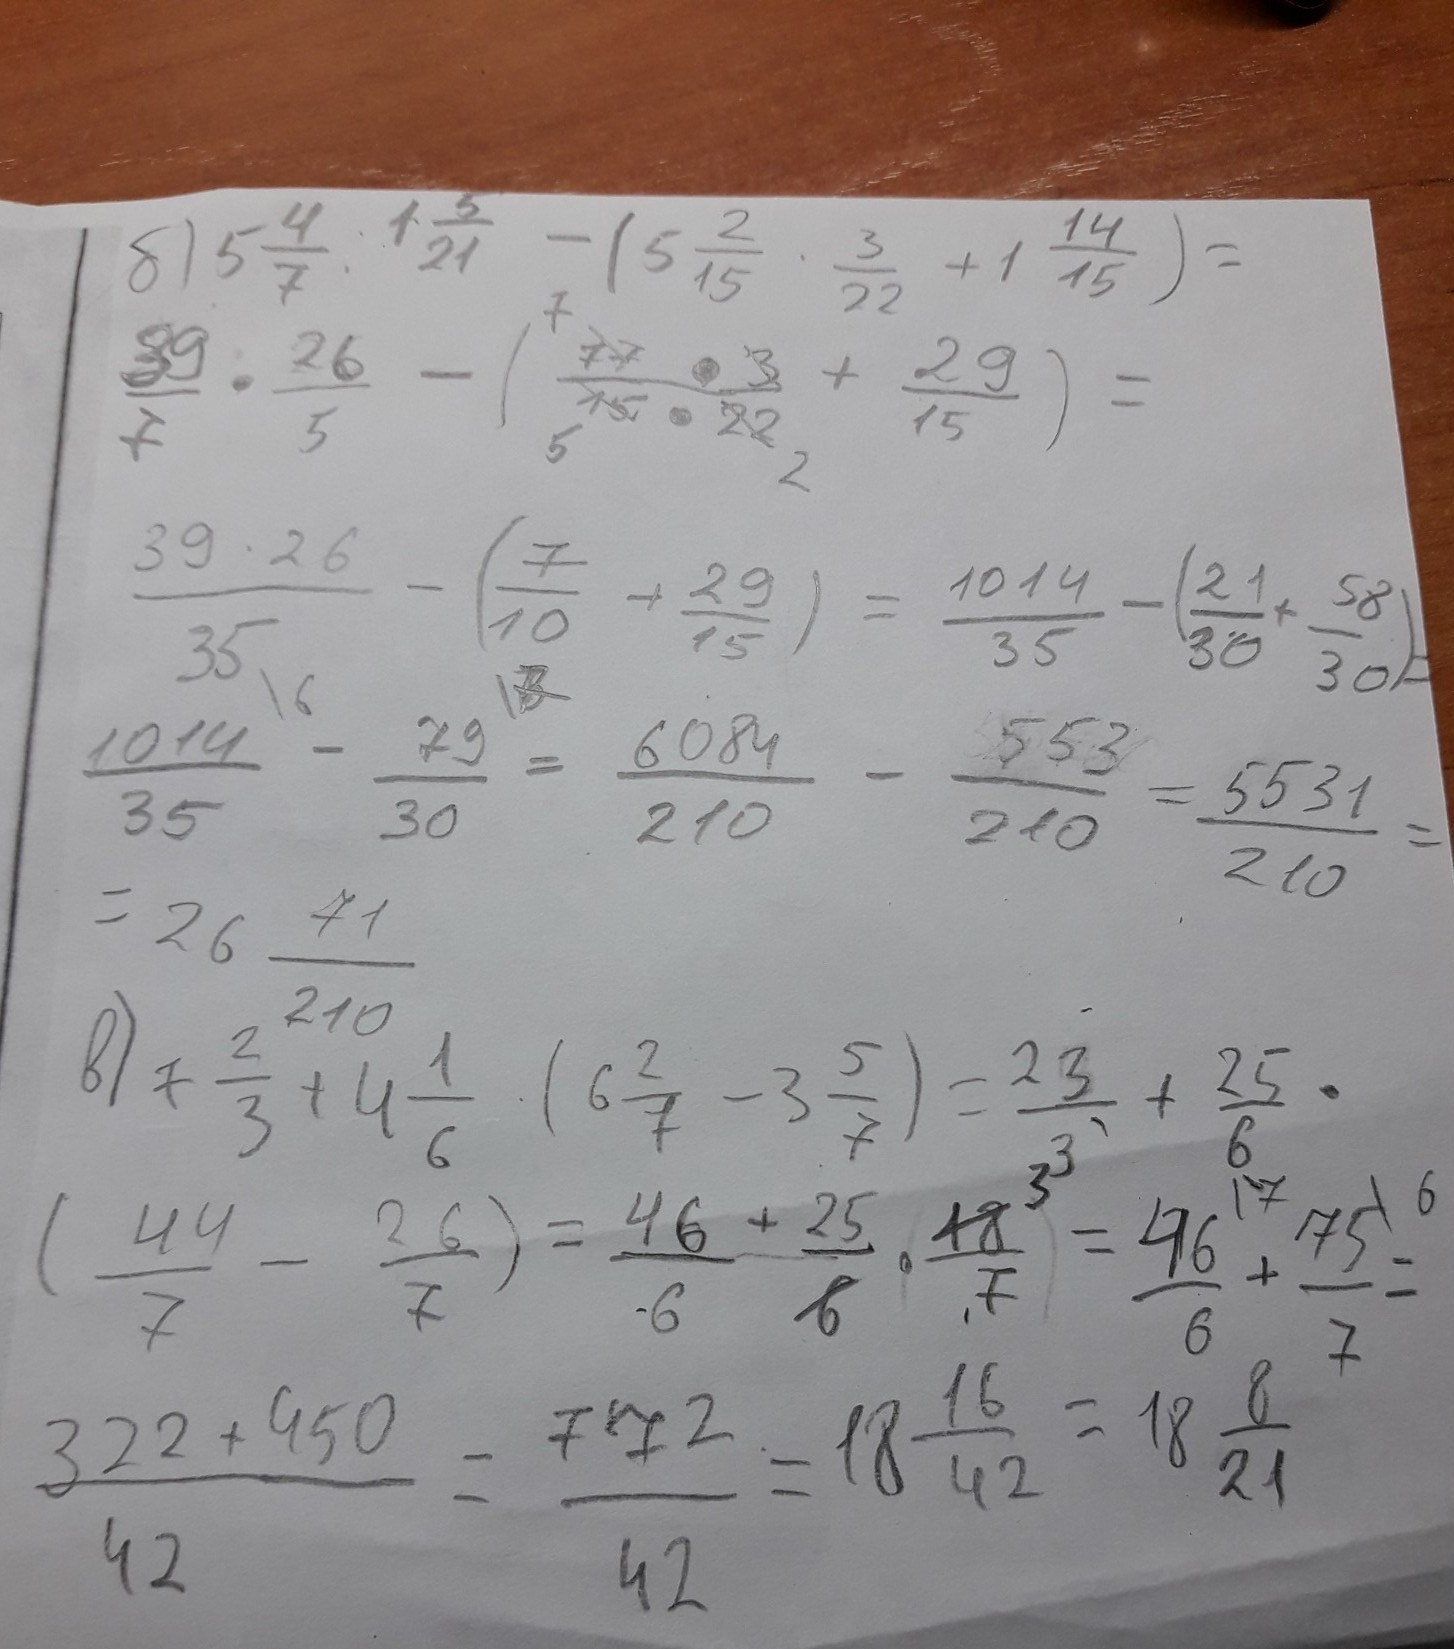 б) 5 4/7 · 1 5/21 - (5 2/15 · 3/22 + 1 14/15) =
39/7 · 26/5 - ( 7 77 · 3 / 5 15 · 22 2 + 29/15 ) =
39 · 26/35 - (7/10 + 29/15) = 1014/35 - (21/30 + 58/30) =
1014/35 \6 - 79/30 = 6084/210 - 553/210 = 5531/210 =
= 26 71/210
в) 7 2/3 + 4 1/6 · (6 2/7 - 3 5/7) = 23/3 + 25/6 ·
(44/7 - 26/7) = 46/6 + 25/6 · 18/7 3 = 46/6 \7 + 75/7 \6 =
322 + 450/42 = 772/42 = 18 16/42 = 18 8/21